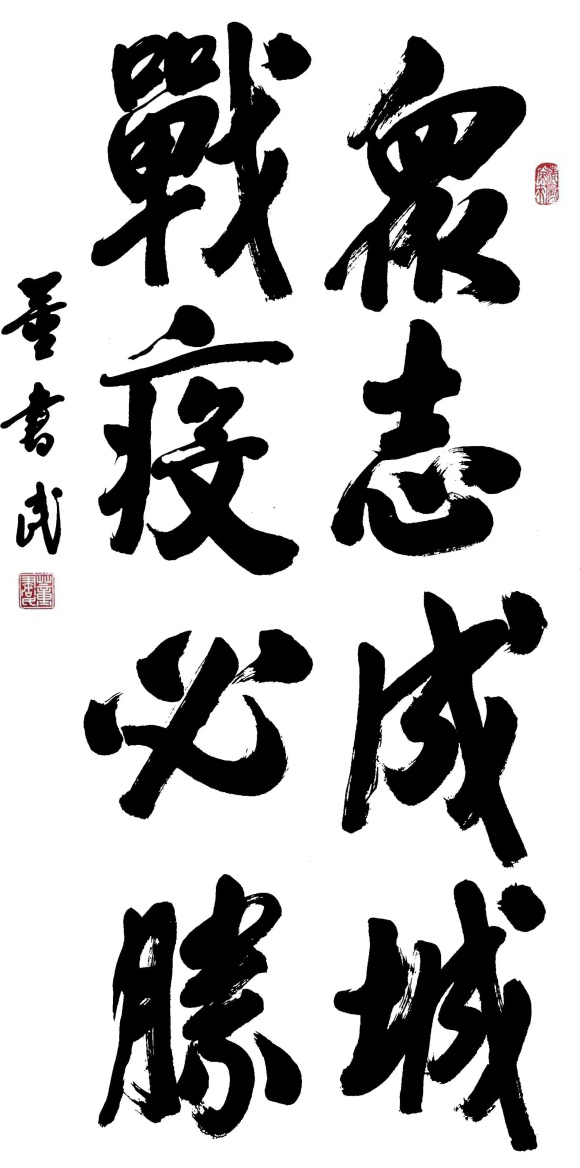 衆志成城
戰疫必勝
董書民